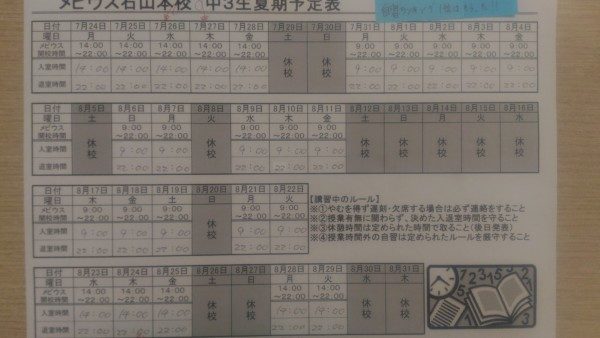 メビウス石山本校 中3生夏期予定表
日付 7月24日 7月25日 7月26日 7月27日 7月28日 7月29日 7月30日 7月31日 8月1日 8月2日 8月3日 8月4日
曜日 月 火 水 木 金 土 日 月 火 水 木 金
メビウス開校時間 14:00～22:00 14:00～22:00 14:00～22:00 14:00～22:00 14:00～22:00 休校 休校 9:00～22:00 9:00～22:00 9:00～22:00 9:00～22:00 9:00～22:00
入室時間 14:00 14:00 14:00 14:00 14:00 9:00 9:00 9:00 9:00 9:00
退室時間 22:00 22:00 22:00 22:00 22:00 22:00 22:00 22:00 22:00 22:00
日付 8月5日 8月6日 8月7日 8月8日 8月9日 8月10日 8月11日 8月12日 8月13日 8月14日 8月15日 8月16日
曜日 土 日 月 火 水 木 金 土 日 月 火 水
メビウス開校時間 休校 9:00～22:00 9:00～22:00 休校 9:00～22:00 9:00～22:00 9:00～22:00 休校 休校 休校 休校 休校
入室時間 9:00 9:00 9:00 9:00 9:00
退室時間 22:00 22:00 22:00 22:00 22:00
日付 8月17日 8月18日 8月19日 8月20日 8月21日 8月22日
曜日 木 金 土 日 月 火
メビウス開校時間 9:00～22:00 9:00～22:00 9:00～22:00 休校 9:00～22:00 9:00～22:00
入室時間 9:00 9:00 9:00 9:00 9:00
退室時間 22:00 22:00 22:00 22:00 22:00
【講習中のルール】
※①やむを得ず遅刻・欠席する場合は必ず連絡をすること
※②授業有無に関わらず、決めた入退室時間を守ること
※③休憩時間は定められた時間で取ること(後日発表)
※④授業時間外の自習は定められたルールを厳守すること
日付 8月23日 8月24日 8月25日 8月26日 8月27日 8月28日 8月29日 8月30日 8月31日
曜日 水 木 金 土 日 月 火 水 木
メビウス開校時間 14:00～22:00 14:00～22:00 14:00～22:00 休校 休校 14:00～22:00 14:00～22:00 休校 休校
入室時間 14:00 14:00 14:00 14:00 14:00
退室時間 22:00 22:00 22:00 22:00 22:00